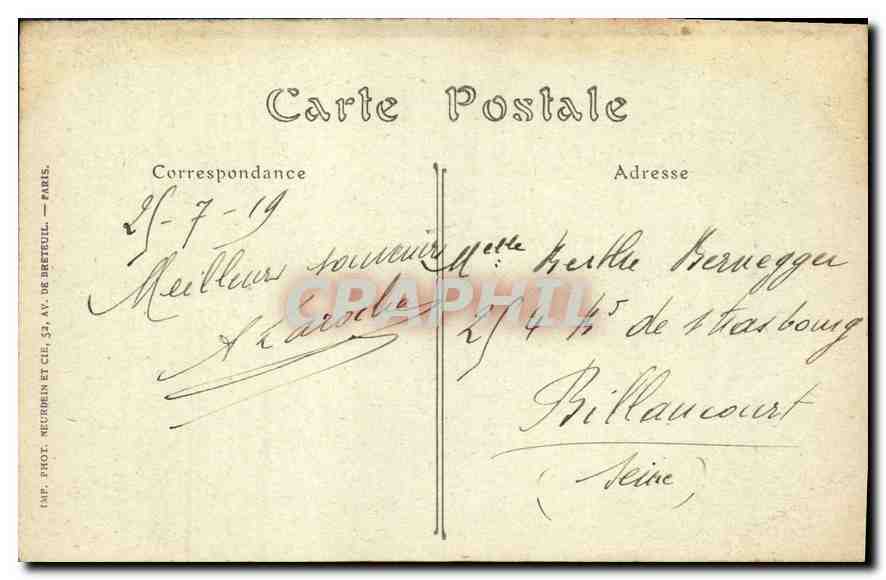 Carte Postale
Correspondance
25-7-19
Meilleurs souvenirs
A Laroche
Adresse
Melle: Berthe Bernegger
25 4 Bd de strasbourg
Billancourt
(Seine)
IMP. PHOT. NEURDEIN ET CIE, 52, AV. DE BRETEUIL. — PARIS.
CPAPHIL